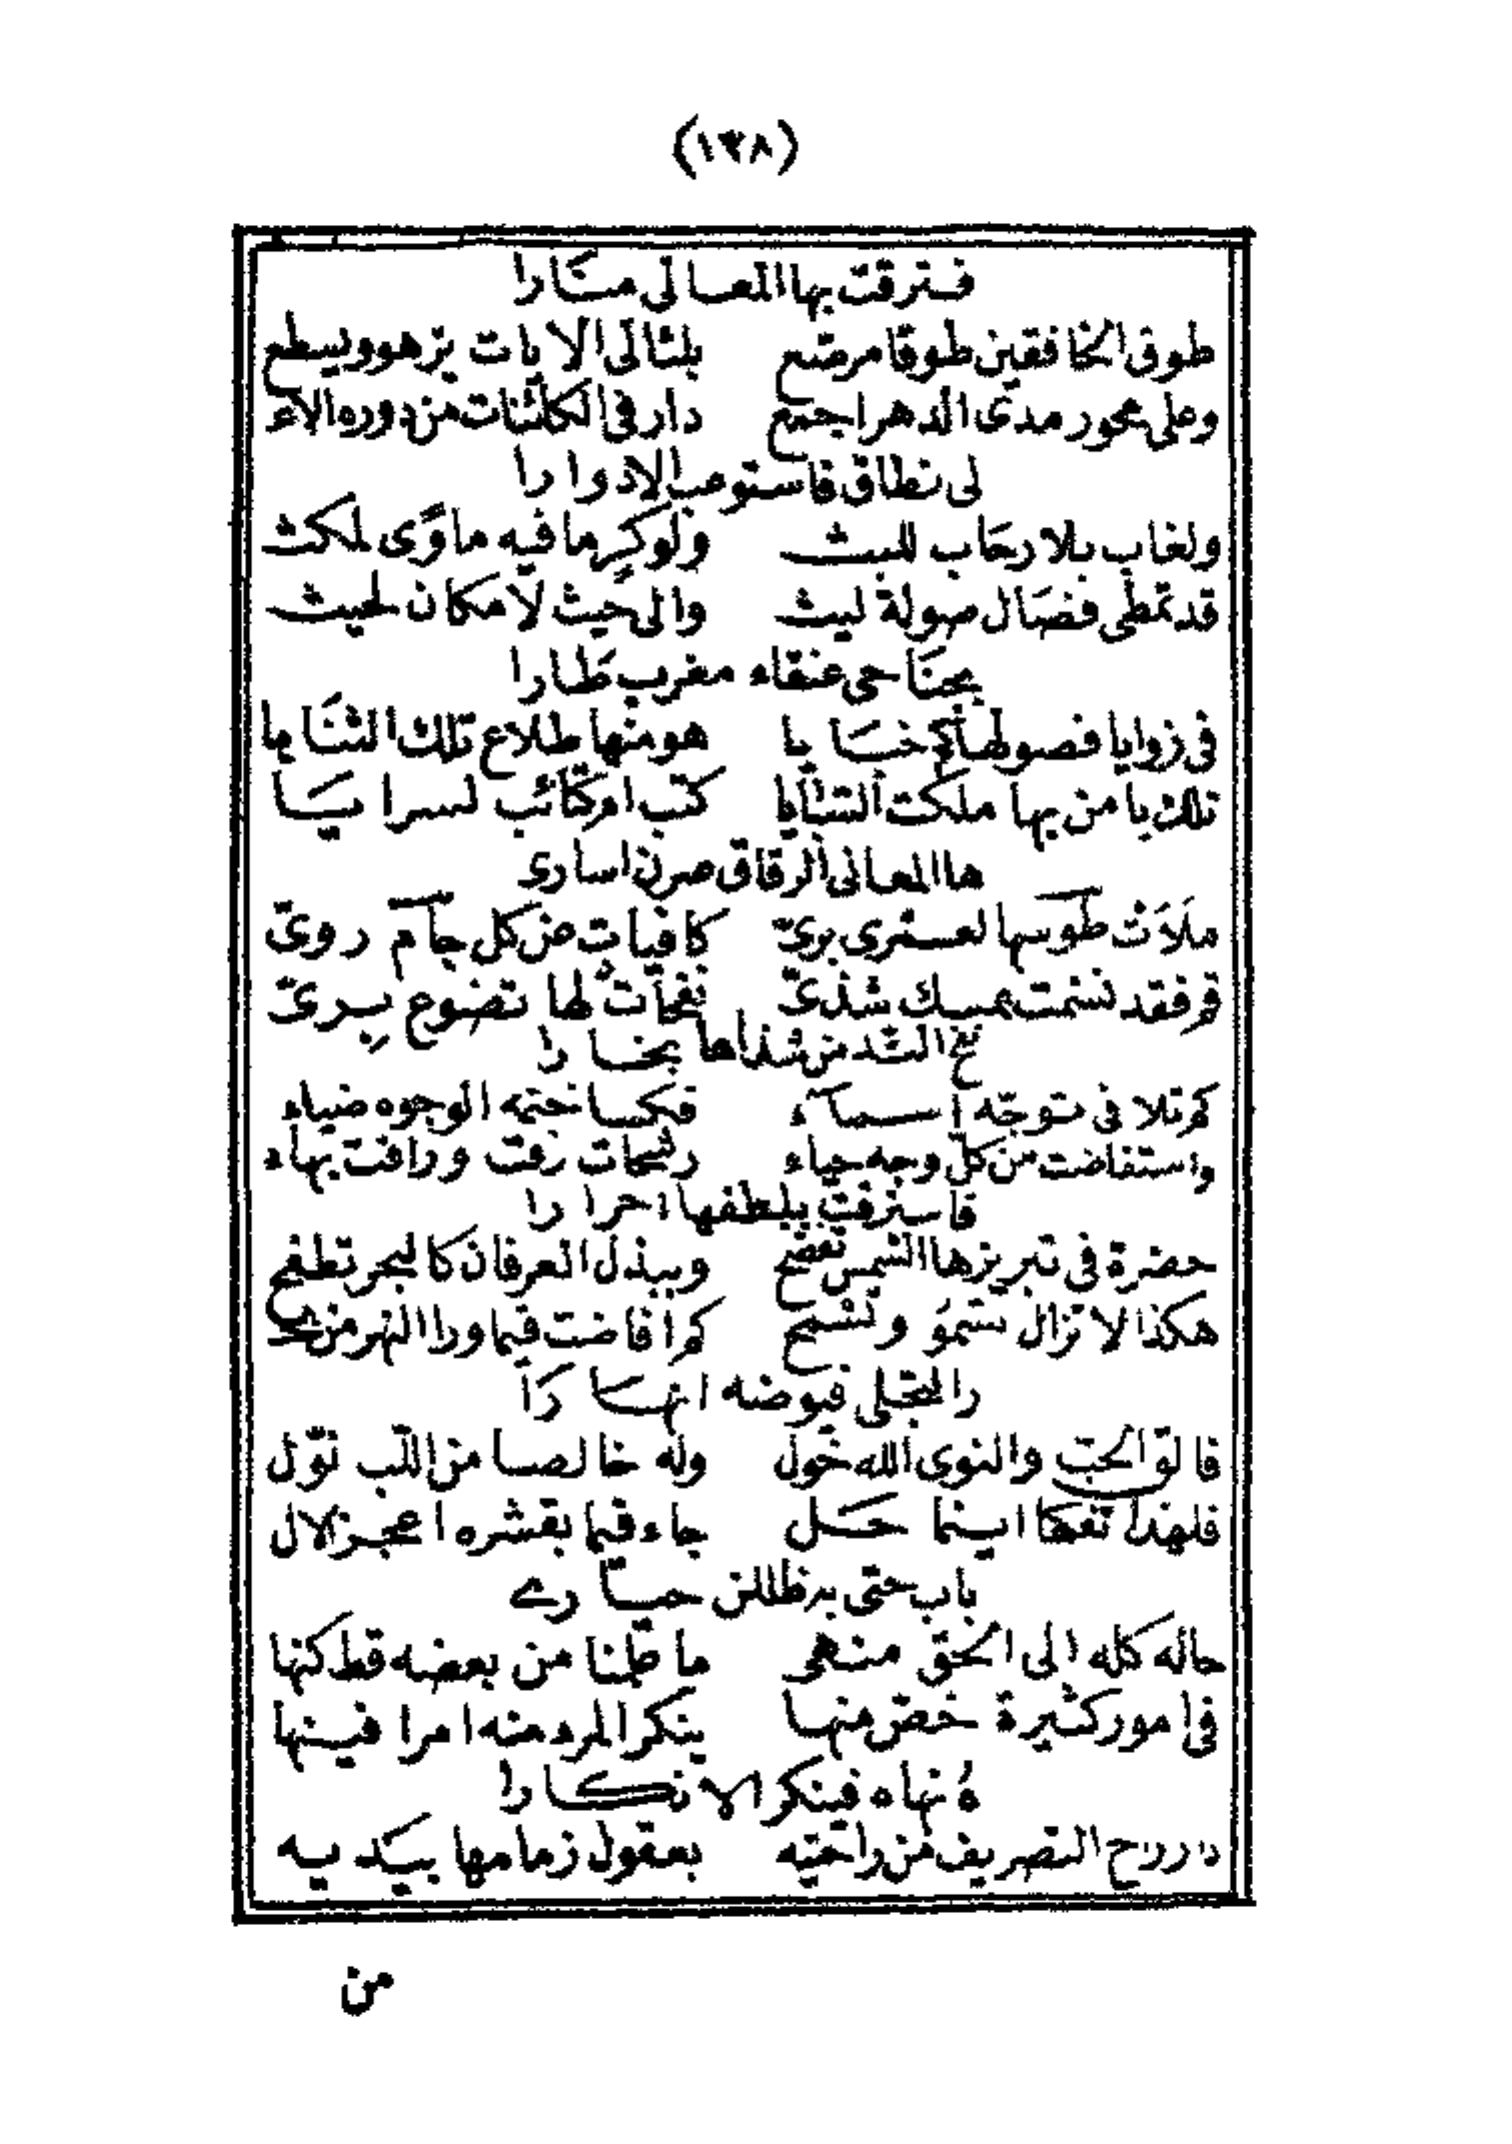 (١٣٨)
فترقت بها المعالى منارا
طوق الخافقين طوقا مرصع بلئالى الايات يزهو ويسطع
وعلى محور مدى الدهر اجمع دار فى الكائنات من دوره الاء
لى نطاق فاستوعب الادوارا
ولغاب بلا رحاب للبث ولوكر ما فيه مأوى لمكث
قد تمطى فصال صولة ليث والى حيث لا مكان لحيث
بجناحى عنقاء مغرب طارا
فى زوايا فصولها كم خبايا هو منها طلاع تلك الثنايا
تلك يا من بها ملكت كتب ام كتائب لسرايا
ها المعانى الرقاق صرن اسارى
ملأت طوسها لعمرى برى كافيات عن كل جام روى
قم فقد نسمت بمسك شذى نفحات لها تضوع برى
من شذاها بخارا
كم تلا فى توجه اسماء فكسا ختمه الوجوه ضياء
واستفاضت من كل وجه حياء رشحات رقت وراقت بهاء
فاسترقت بلطفها احرارا
حضرة فى تبريزها الشمس تفضح وببذل العرفان كالبحر تطفح
هكذا لا تزال تسمو وتسمح كم افاضت فيما ورا النهر من
را لتجلى فيوضه انهارا
فالق الحب والنوى الله خول وله خالصا من اللب نول
فلهذا اينما حل جاء فيما بقشره اعجز الال
باب حتى به ظللن حيارى
حاله كله الى الحق منهى ما من بعضه قط كنها
فى امور كثيرة خض منها ينكر المرء منه امرا فينها
ه نهاه فينكر الانكارا
دار روح التصريف من راحتيه بعقول زمامها بيديه
من